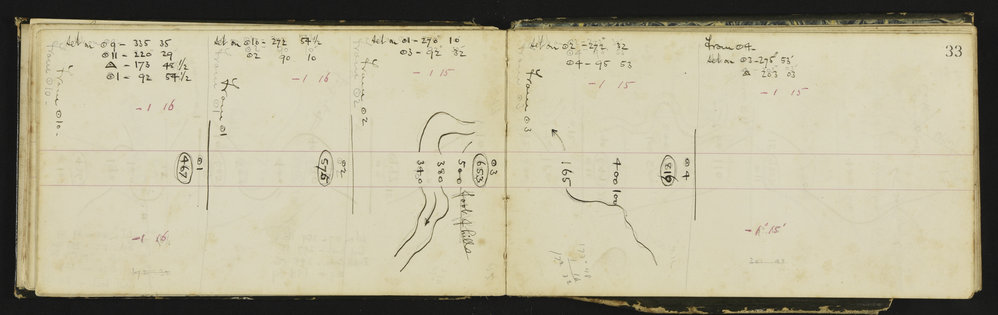 Set on ⊙9 - 335 35
⊙11 - 220 29
△ - 173 48½
⊙1 - 92 54½
- 1 16
From ⊙10
467
⊙1
- 1 16
Set on ⊙10 - 272 54½
⊙2 90 10
- 1 16
From ⊙1
576
⊙2
Set on ⊙1 - 270 10
⊙3 - 92 32
- 1 15
From ⊙2
340
380
500
foot of hills
653
⊙3
Set on ⊙2 - 272 32
⊙4 - 95 53
- 1 15
From ⊙3
165
400
100
816
⊙4
From ⊙4
Set on ⊙3 - 275 53
△ 203 03
- 1 15
- 1° 15'
33